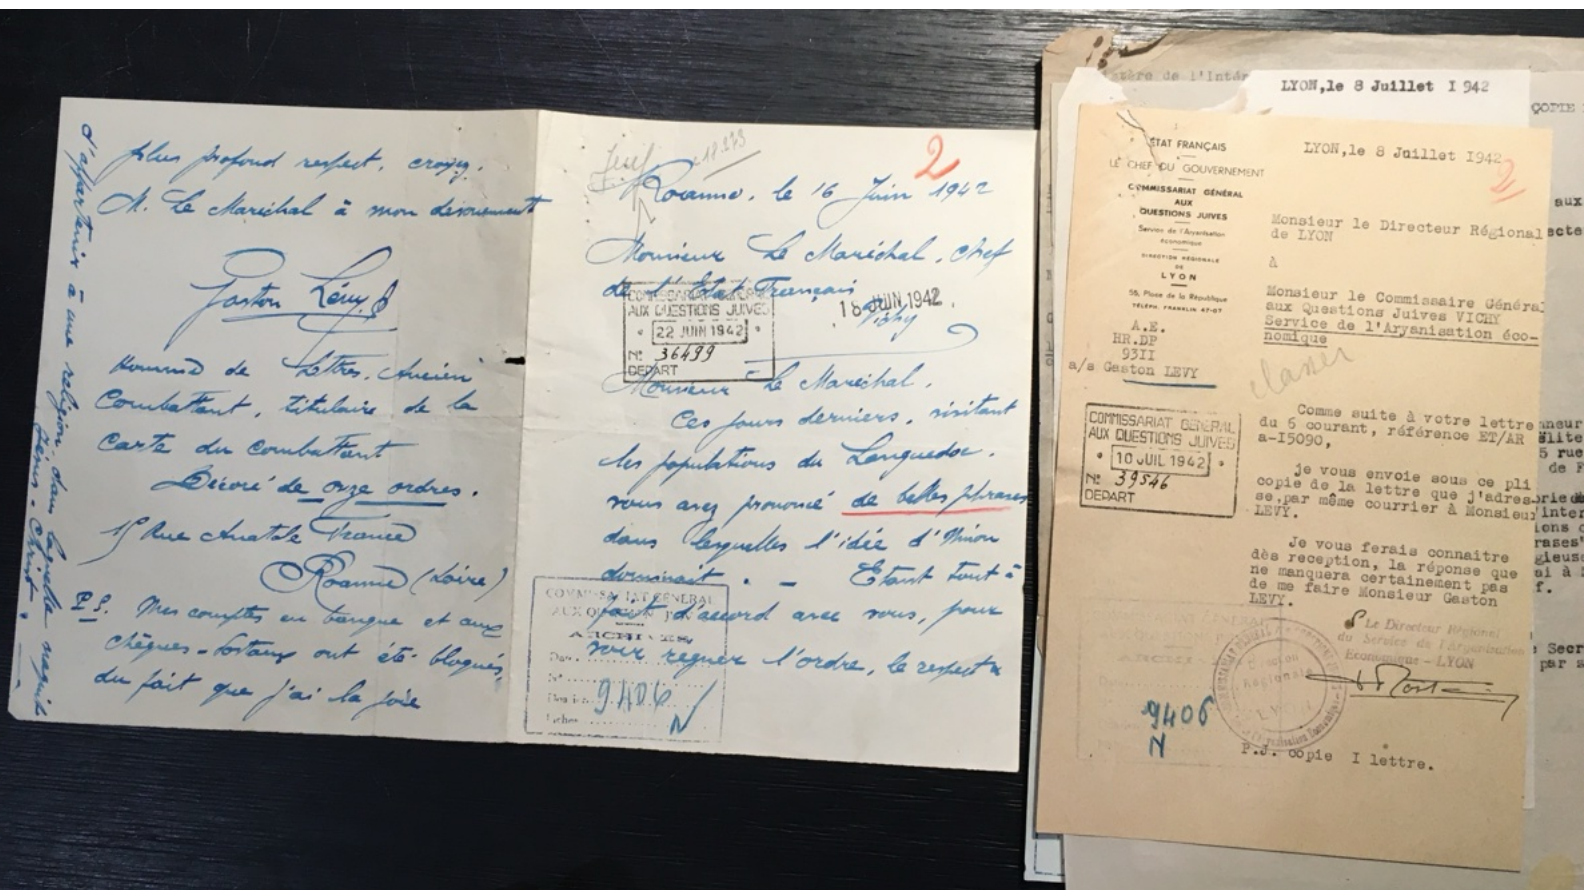 plus profond respect, croyez.
M. Le Maréchal à mon dévouement
Gaston Lévy
Homme de Lettres. Ancien
Combattant, titulaire de la
Carte du Combattant
Décoré de onze ordres.
15 Rue Anatole France
Roanne (Loire)
P.S. Mes comptes en banque et aux
chèques-Postaux ont été bloqués,
du fait que j'ai la joie
d'appartenir à une religion, dans laquelle naquit
Jésus-Christ.
Juif 18.273
2
Roanne, le 16 Juin 1942
Monsieur Le Maréchal, chef
de l'Etat Français
Vichy
18 JUIN 1942
COMMISSARIAT GENERAL
AUX QUESTIONS JUIVES
22 JUIN 1942
N° 36499
DEPART
Monsieur Le Maréchal,
Ces jours derniers, visitant
les populations du Languedoc,
vous avez prononcé de belles phrases
dans lesquelles l'idée d'Union
dominait. - Etant tout à
fait d'accord avec vous, pour
voir régner l'ordre, le respect
COMMISSARIAT GENERAL
AUX QUESTIONS
ARCHIVES
Date
N°
9406
Fiches
N
de l'Inté
LYON,le 8 Juillet I 942
COPIE
ÉTAT FRANÇAIS
LE CHEF DU GOUVERNEMENT
COMMISSARIAT GÉNÉRAL
AUX
QUESTIONS JUIVES
Service de l'Aryanisation
économique
DIRECTION RÉGIONALE
DE
LYON
56, Place de la République
TÉLÉPH. FRANKLIN 47-07
A.E.
HR.DP
93II
a/s Gaston LEVY
LYON,le 8 Juillet I942
2
Monsieur le Directeur Régional
de LYON
À
Monsieur le Commissaire Général
aux Questions Juives VICHY
Service de l'Aryanisation éco-
nomique
classer
COMMISSARIAT GENERAL
AUX QUESTIONS JUIVES
10 JUIL 1942
N° 39546
DEPART
Comme suite à votre lettre
du 6 courant, référence ET/AR
a-I5090,
je vous envoie sous ce pli
copie de la lettre que j'adres-
se,par même courrier à Monsieur
LEVY.
Je vous ferais connaitre
dès reception, la réponse que
ne manquera certainement pas
de me faire Monsieur Gaston
LEVY.
Le Directeur Régional
du Service de l'Aryanisation
Economique - LYON
ARCHIVES
Direction
Régionale
LYON
9406
N
P.J. copie I lettre.
aux
5 rue